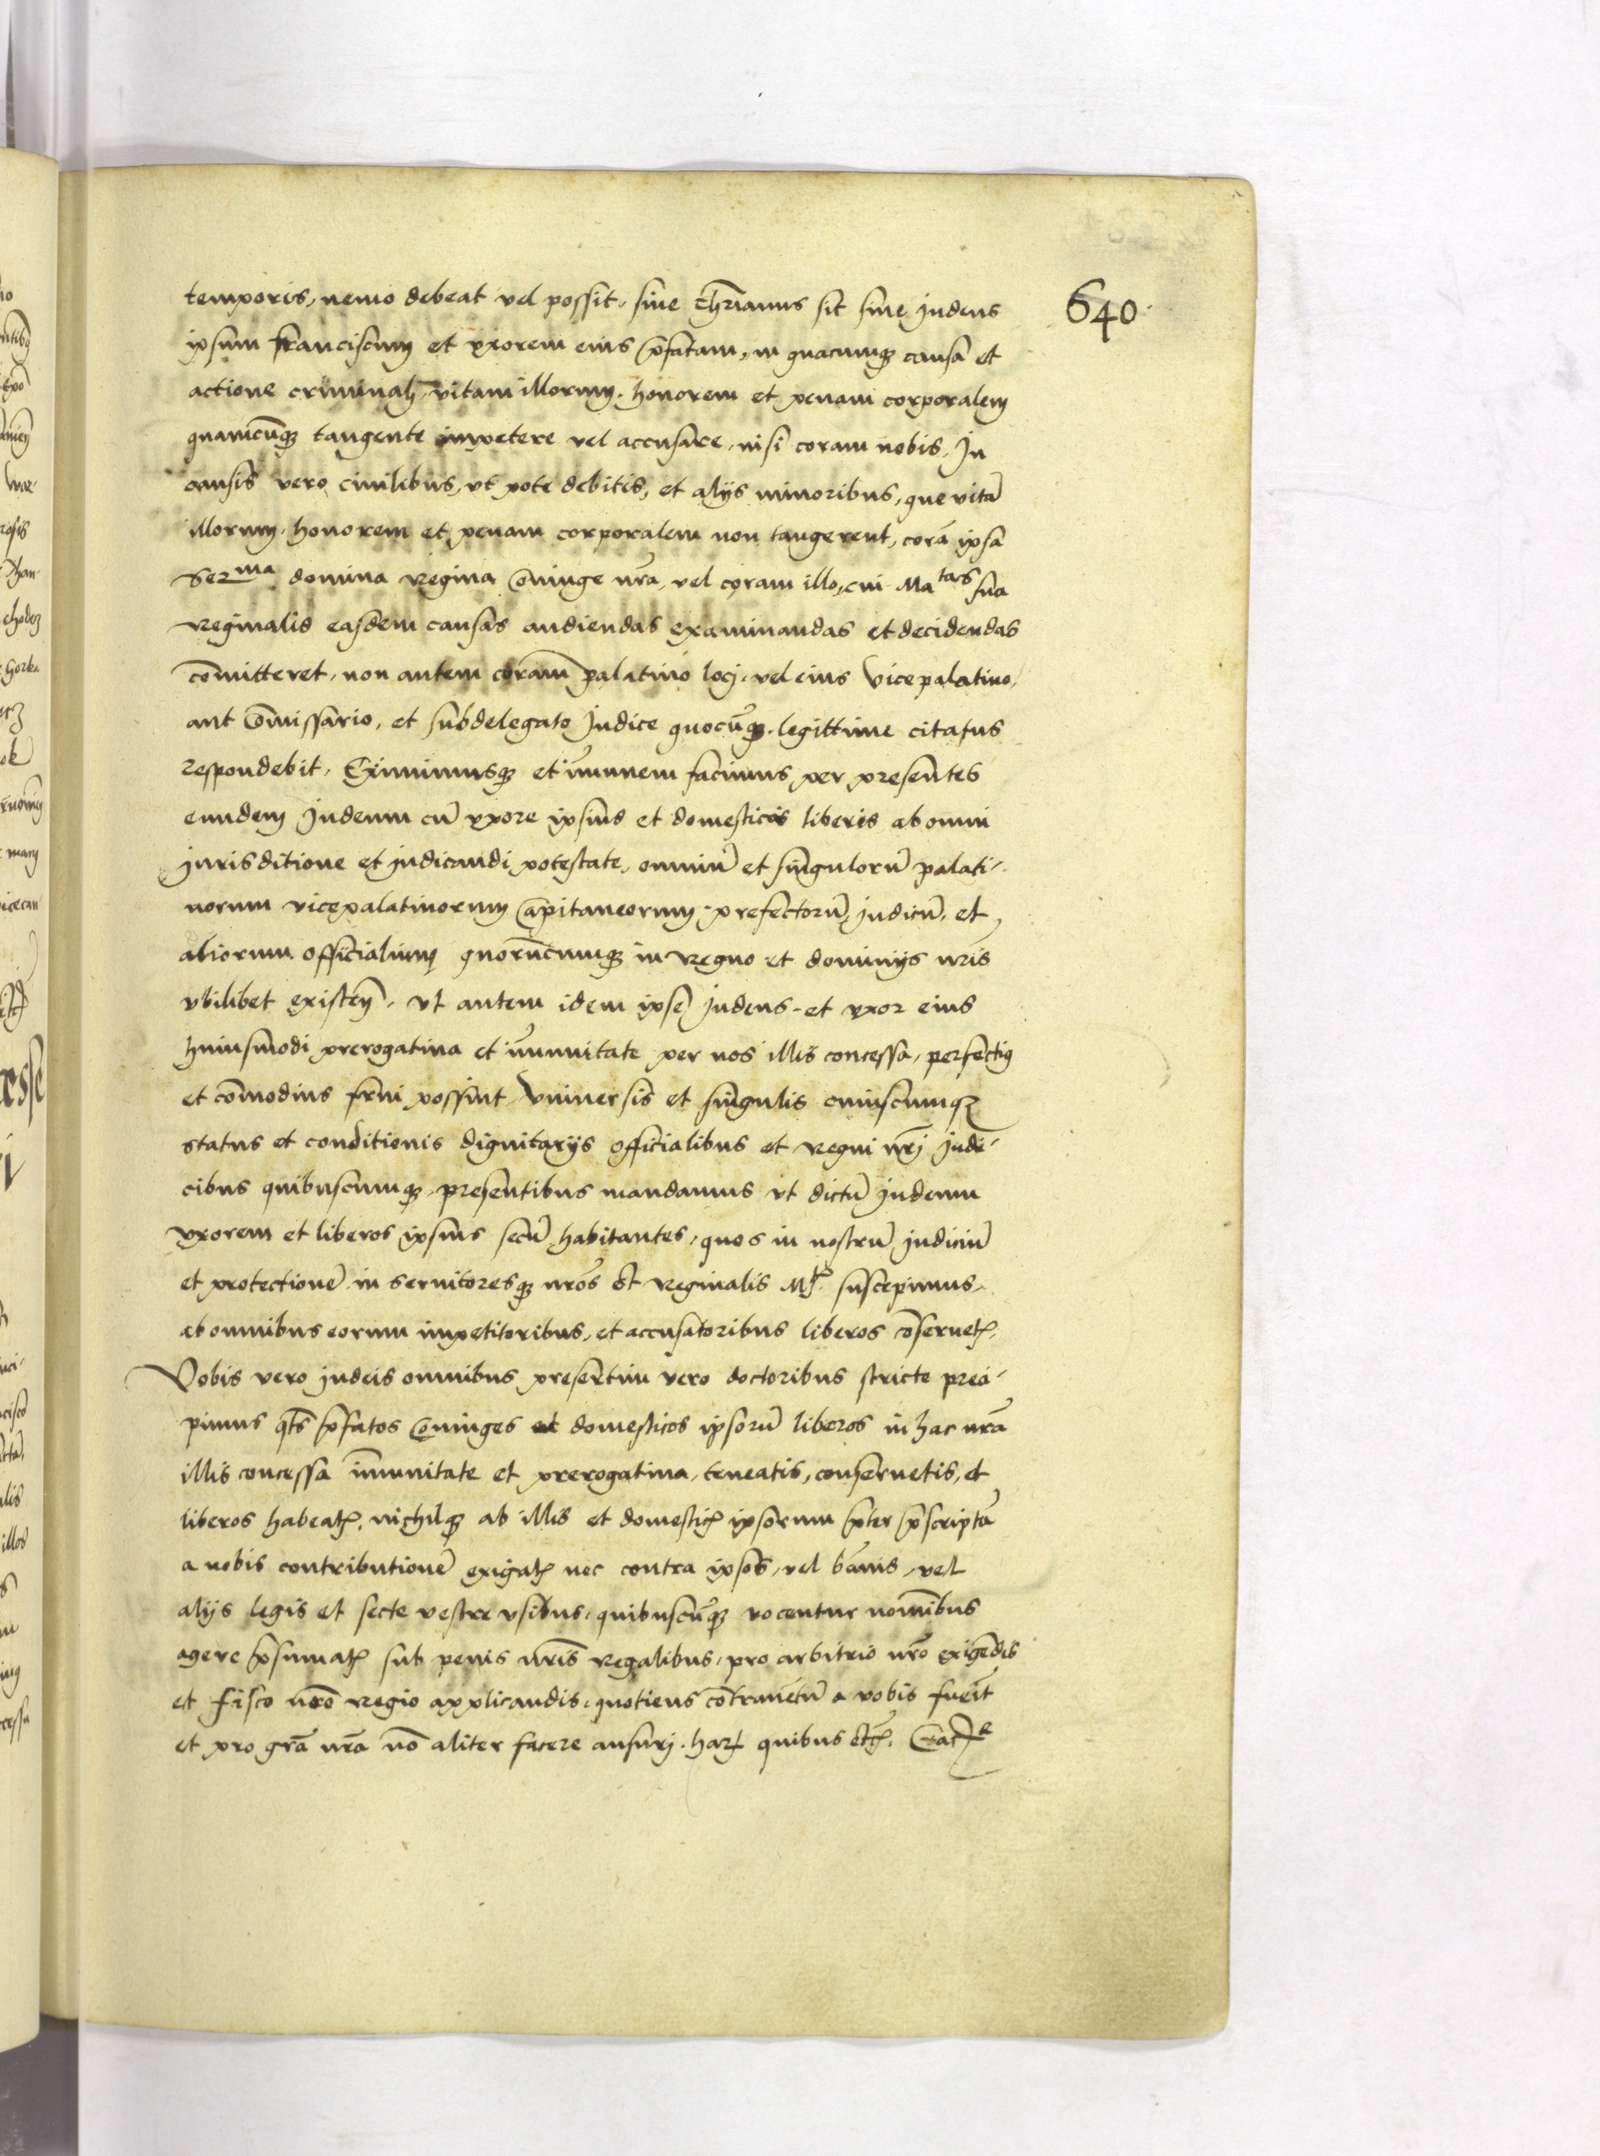 640
temporis, nemo debeat vel possit, siue chrianus sit siue Judeus
ipsum Franciscum et vxorem eius p̄fatam, in quacunq; causa et
actione criminali, vitam illorum, honorem et penam corporalem
quamcunq; tangente impetere vel accusare, nisi coram nobis, In
causis vero ciuilibus, vt pote debitis, et alijs minoribus, que vitā
illorum, honorem et penam corporalem non tangerent, corā ipsa
Serma domina Regina cōniuge nrā, vel coram illo, cui Matas sua
Reginalis easdem causas audiendas examinandas et decidendas
cōmitteret, non autem coram palatino loci, vel eius vicepalatino,
aut cōmissario, et subdelegato Judice quocūq;, legittime citatus
respondebit, Eximimusq; et īmunem facimus per presentes
eundem Judeum cū vxore ipsius et domesticis liberis ab omni
Jurisditione et judicandi potestate, omniū et singulorū palati-
norum vicepalatinorum Capitaneorum, prefectorū, judicū, et
aliorum officialium quorūcumq; in Regno et dominijs nrīs
vbilibet existen̄, vt autem idem ipse Judeus et vxor eius
huiusmodi prerogatiua et īmunitate per nos illis concessa, perfectius
et cōmodius frui possint, vniuersis et singulis cuiuscumq;
status et conditionis dignitarijs officialibus et Regni nrī Judi-
cibus quibuscumq;, presentibus mandamus vt dictū Judeum
vxorem et liberos ipsius secū habitantes, quos in nostrū Judiciū
et protectionē in seruitoresq; nrōs et Reginalis Mtis suscepimus,
ab omnibus eorum impetitoribus, et accusatoribus liberos cōseruetis,
Vobis vero Judeis omnibus presertim vero doctoribus stricte preci-
pimus qts p̄fatos Coniuges et domesticos ipsorū liberos in hac nrā
illis concessa īmunitate et prerogatiua, teneatis, conseruetis, et
liberos habeatis, nichilq; ab illis et domesticis ipsorum p̄ter p̄scriptā
a nobis contributionē exigatis nec contra ipsos, vel bānis, vel
alijs legis et secte vestre vsibus, quibuscūq; vocentur nominibus
agere p̄sumatis sub penis nrīs Regalibus, pro arbitrio nrō exigēdis
et fisco nrō Regio applicandis, quotiens cōtrauentū a vobis fuerit
et pro grā nrā nō aliter facere ausuri, har quibus etc. Crac